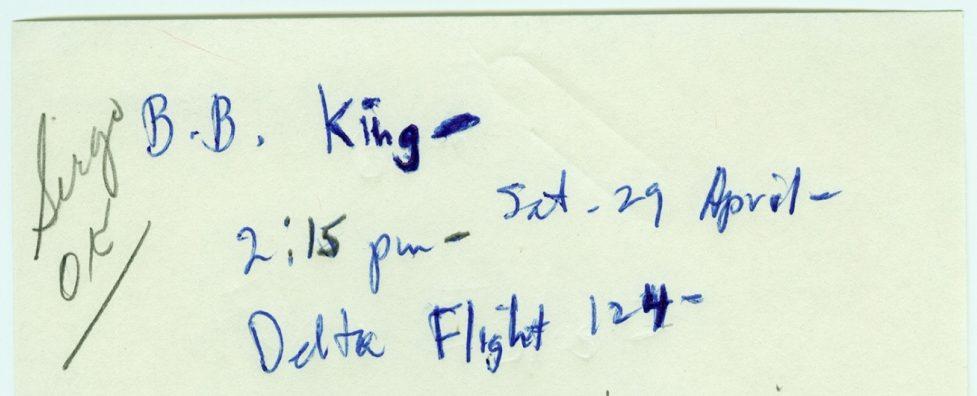 B.B. King -
Sat. 29 April -
2:15 pm -
Delta Flight 124 -
Sergo
OK